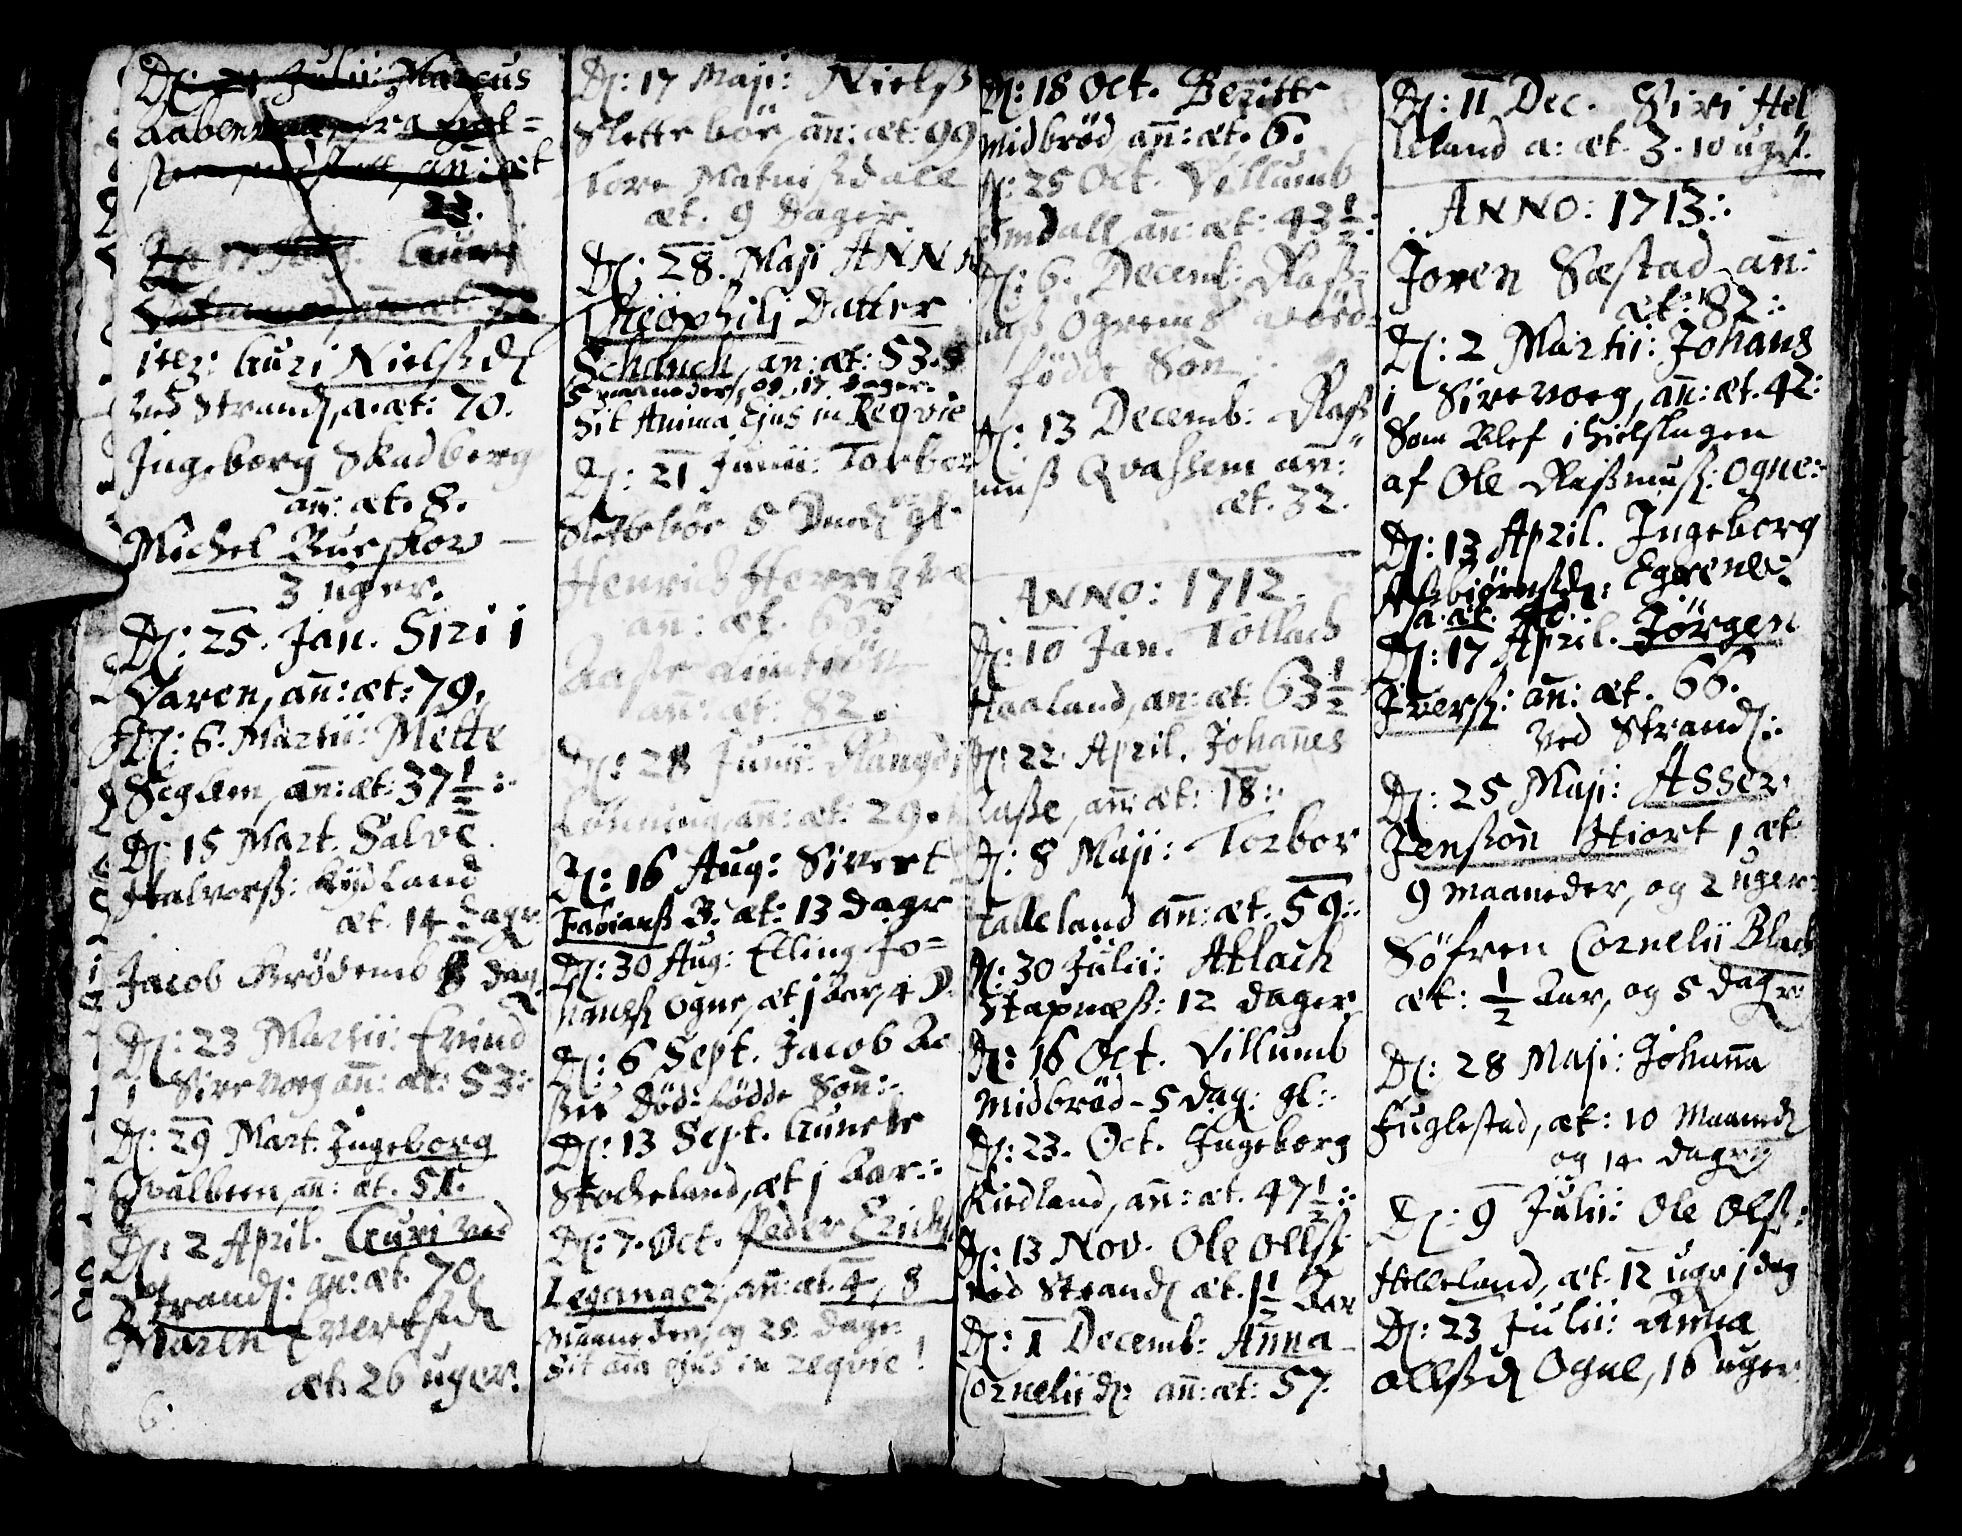 D: 21 Julii: Marcus
Aabenraa, fra Hol=
steen, an: æt
23.
Aug. Guri
an: æt: 70
item: Guri Nielsd
ved Strand, a: æt: 70.
Ingeborg Skadberg
an: æt. 8.
Michel Burskow
3 uger.
D: 25. Jan. Siri i
Varen, an: æt: 79.
D: 6. Martii: Mette
Seglem, an: æt: 37 1/2:
D: 15 Mart. Salve
Halvorß: Rydland
æt. 14 dagr.
Jacob Grödemb 8 dag
D: 23 Martii: Evind
i Sirevoeg an: æt: 53:
D: 29 Mart. Ingeborg
Qvalbeen, an: æt. 51.
D: 2 April. Guri ved
Strand: an: æt. 70.
Maren Evertsd
æt: 26 uger.
6.
D: 17 Maji: Nielß
Sletteböe, an: æt: 99
Tore Matnisdall
æt. 9 dager
D: 28. Maji ANNA
Theophili Datter
Schauch, an: æt: 53.
5 maaneder, og 17 dager.
Sit Anima Ejus in Reqvie
D: 21 Junii: Torbor
Sletteböe 5 gl.
Henrich
an: æt. 66
Aase
an: æt: 82.
D: 28 Junii: Rangdi
an: æt: 29.
D: 16 Aug: Sivert
Fabianß B. æt: 13 dagr
D: 30 Aug: Elling Jo=
hanß Ogne, æt j Aar, 4 D.
D: 6 Sept. Jacob Aa
död: födde Sön:
D: 13 Sept. Gunele
Stocheland, æt j Aar:
D: 7. Oct. Peder Erichs
Leganger, an: æt. 4, 8
Maaneder, og 25 dage:
Sit aia ejus in reqvie!
D: 18 Oct. Beritte
Midbröd an: æt. 6.
D: 25 Oct. Villumb
Omdall an: æt: 43 1/2:
D: 6. Decemb: Raß=
muß Ögrems död=
födde Sön:
D: 13 Decemb: Raß
muß Qvassem an:
æt. 32.
ANNO: 1712.
D: 10 Jan. Tollach
Haaland, an: æt: 63 1/2
D: 22 April. Johannes
an: æt: 18:
D: 8 Maji: Torbor
Falleland an: æt. 59:
D: 30 Julii: Atlach
Stapnæß: 12 dager
D: 16 Oct. Villumb
Midbröd - 5 dag: gl:
D: 23. Oct. Ingeborg
Riedland, an: æt. 47 1/2:
D: 13 Nov. Ole Ollß:
ved Strand æt. 1 1/2 Aar
D: 1 Decemb: Anna
Cornelii d: an: æt: 57.
D: 11 Dec. Siri Hel
leland a: æt. 3. 10 ugr.
ANNO: 1713:
Joren Sæstad an:
æt: 82:
D: 2 Martii: Johans
i Sirevoeg, an: æt. 42:
Som Blef ihielslagen
af Ole Raßmuß: Ogne:
D: 13 April. Ingeborg
Asbiörnsd: Egrene:
a. æt.
D: 17 April. Jörgen
Iverß: an: æt. 66.
ved Strand:
D: 25 Maji: Asser
Jenßön Hiort, æt
9 maaneder, og 2 uger:
Söfren Cornelii Blach
æt: 1/2 Aar, og 5 dagr:
D: 28 Maji: Johanna
Fuglestad, æt: 10 Maaned
og 14 dagr
D: 9 Julii: Ole Olß:
Helleland, æt. 12 ugr j dag
D: 23 Julii: Anna
Ollßd Ogne, 16 uger.